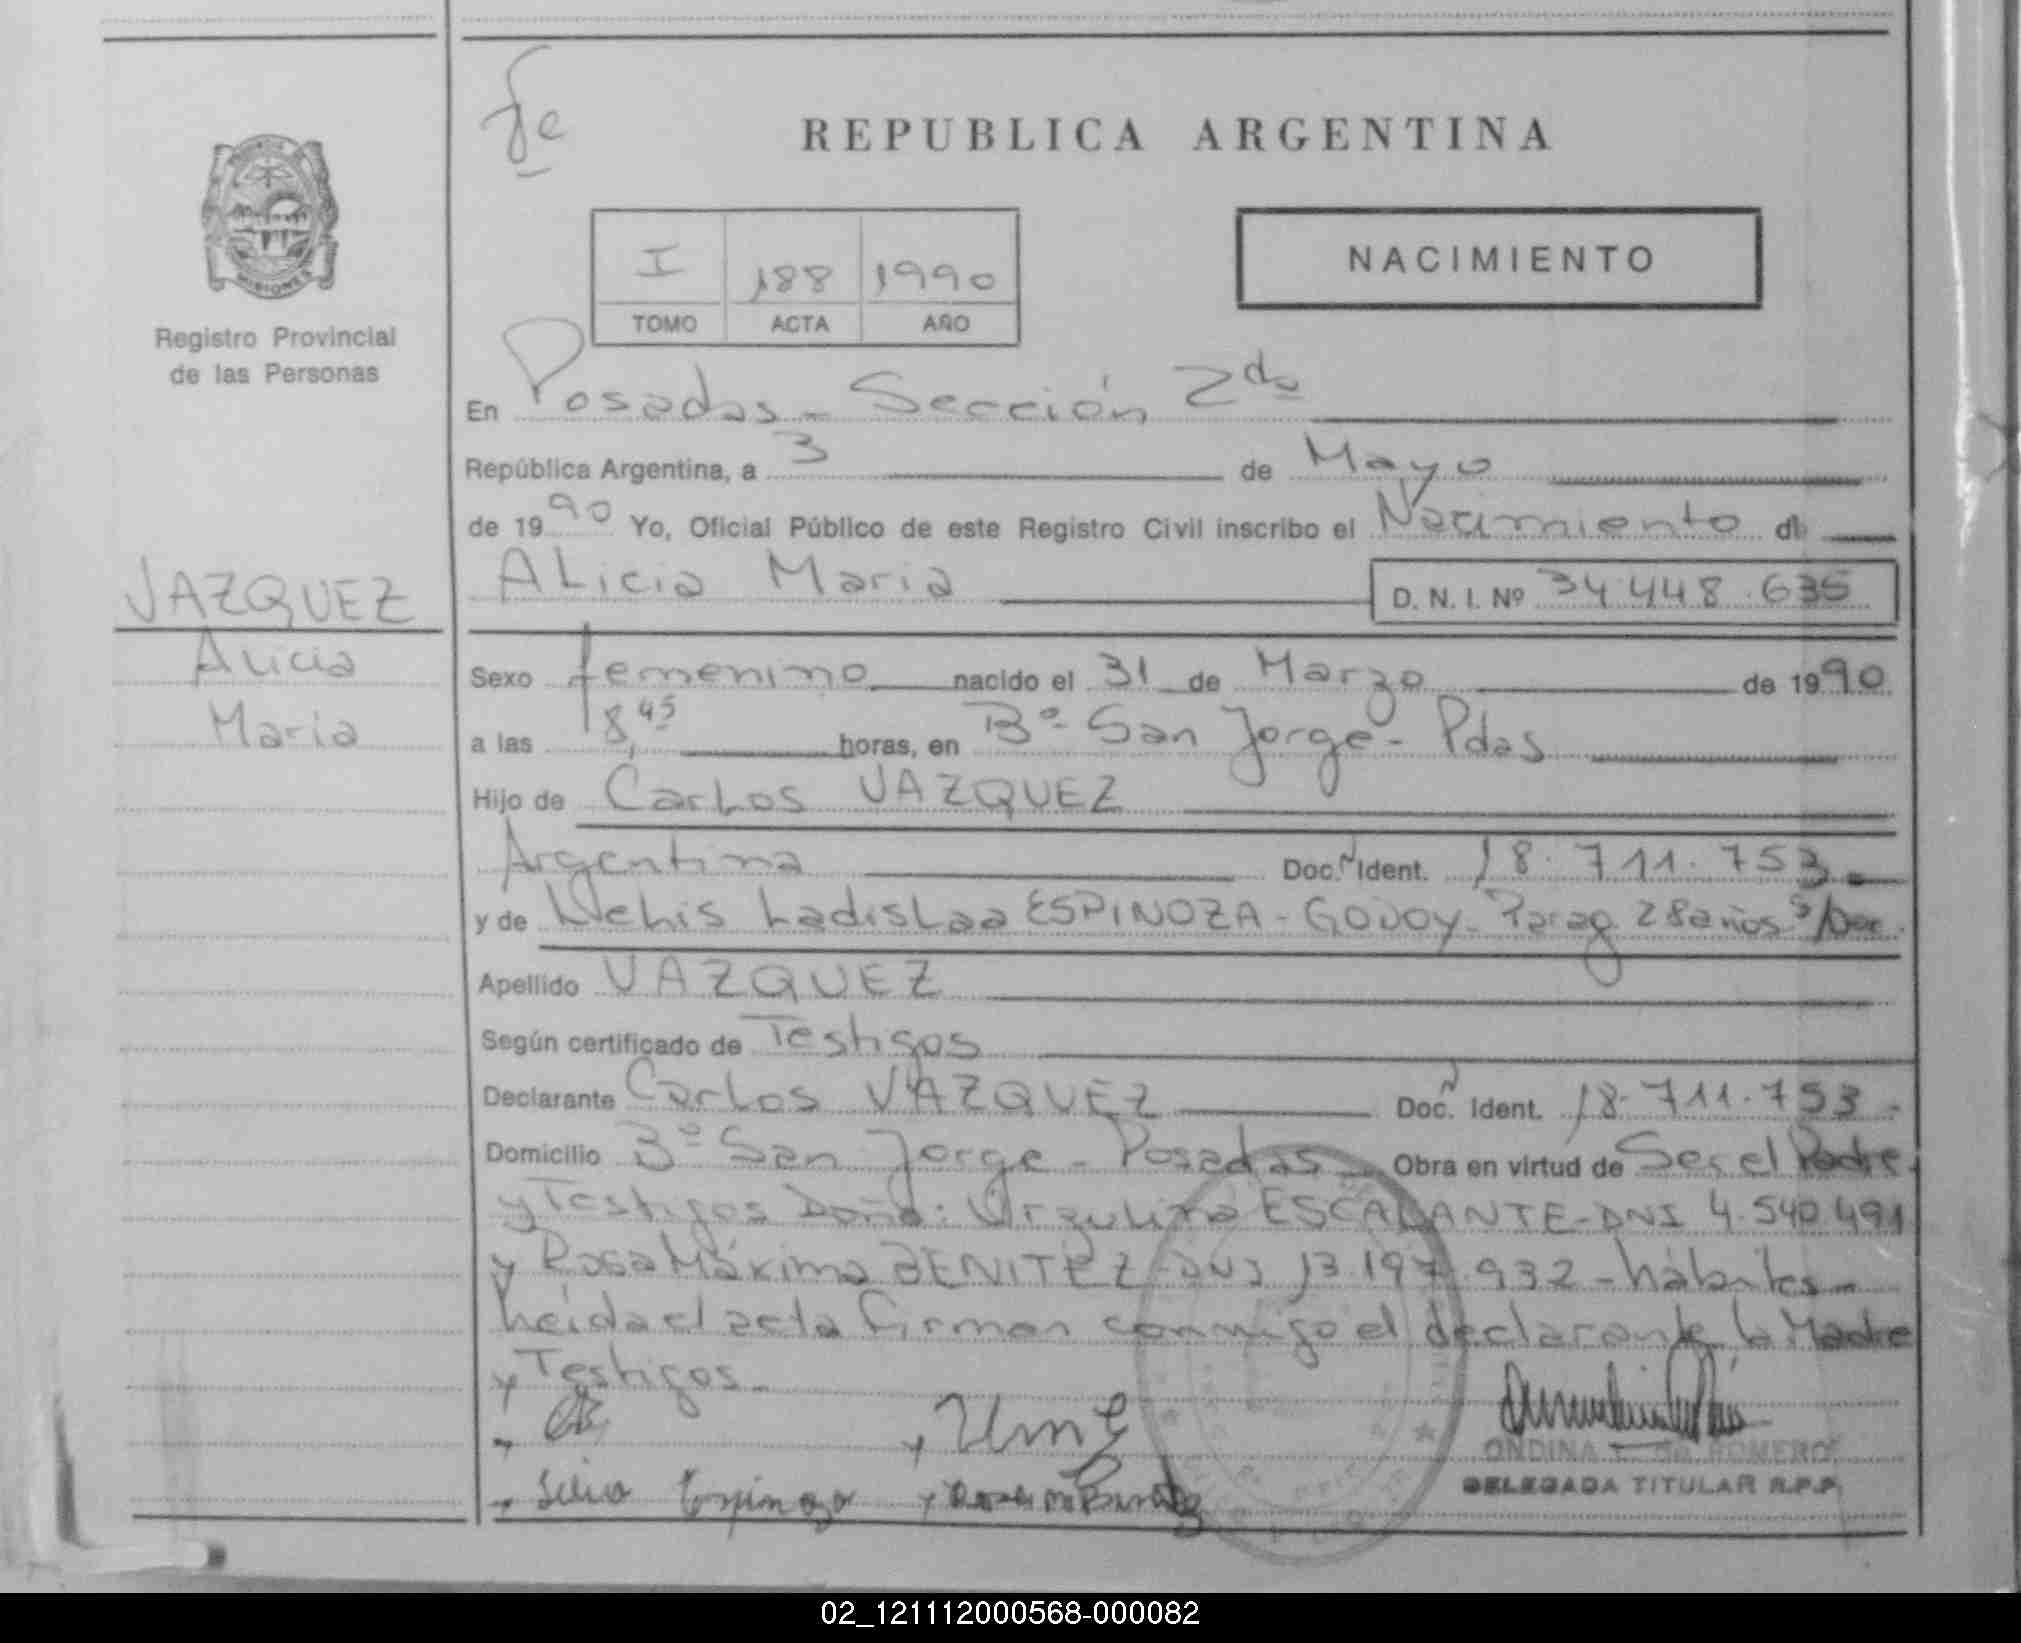 fe
REPUBLICA ARGENTINA
I 188 1990
TOMO ACTA AÑO
NACIMIENTO
MISIONES
Registro Provincial
de las Personas
En Posadas - Sección 2da
República Argentina, a 3 de Mayo
de 1990 Yo, Oficial Público de este Registro Civil inscribo el Nacimiento d
VAZQUEZ
Alicia
Maria
Alicia Maria D. N. I. Nº 34.448.635
Sexo femenino nacido el 31 de Marzo de 1990
a las 8,45 horas, en Bº San Jorge - Pdas
Hijo de Carlos VAZQUEZ
Argentina Doc. Ident. 18.711.753
y de Ladislaa ESPINOZA - GODOY - Parag 28 años s/Doc.
Apellido VAZQUEZ
Según certificado de Testigos
Declarante Carlos VAZQUEZ Doc. Ident. 18.711.753
Domicilio Bº San Jorge - Posadas - Obra en virtud de Ser el Padre
y Testigos Doña: Urzulina ESCALANTE - DNI 4.540.491
y Rosa Máxima BENITEZ - DNI 13.197.932 - hábiles -
Leída el acta firman conmigo el declarante la Madre
y Testigos -
ONDINA ROMERO
DELEGADA TITULAR R.P.P.
02_121112000568-000082